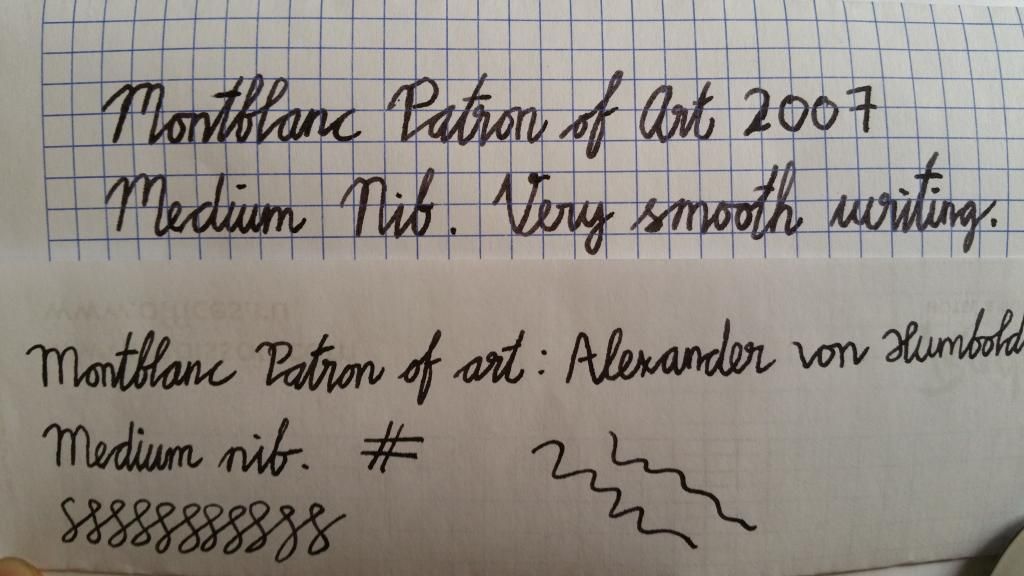 Montblanc Patron of Art 2007
Medium Nib. Very smooth writing.
Montblanc Patron of art: Alexander von Humbold
Medium nib. #